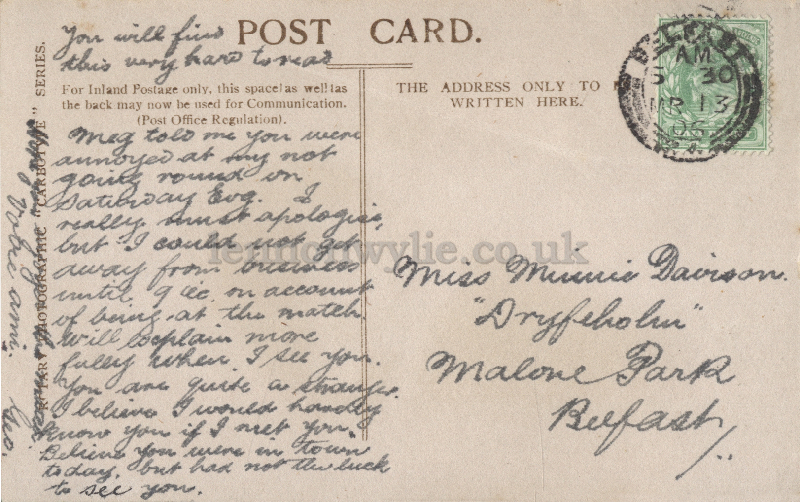 POST CARD.
You will find
this very hard to read
For Inland Postage only, this space as well as
the back may now be used for Communication.
(Post Office Regulation).
Meg told me you were
annoyed at my not
going round on
Saturday Evg. I
really must apologise,
but I could not get
away from business
until 9 on account
of being at the match.
Will explain more
fully when I see you.
You are quite a stranger.
I believe I would hardly
know you if I met you.
Believe you were in town
today, but had not the luck
to see you.
Votre ami.
Geo.
PHOTOGRAPHIC "CARBOTYPE" SERIES.
THE ADDRESS ONLY TO
WRITTEN HERE.
BELFAST
AM
5 30
MR 13
Miss Minnie Davison.
"Dryfeholm"
Malone Park
Belfast
lennonwylie.co.uk